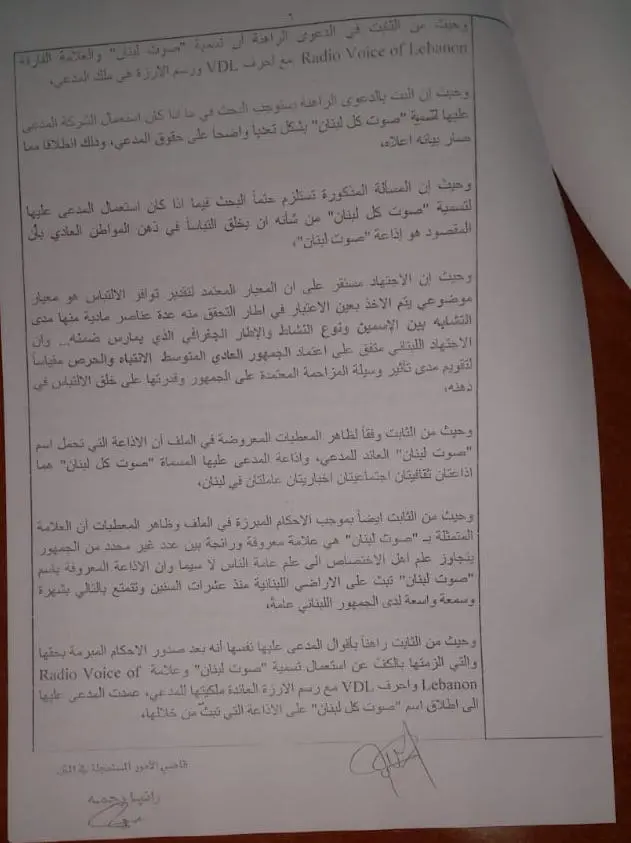 ٦
وحيث من الثابت في الدعوى الراهنة أن تسمية "صوت لبنان" والعلامة الفارقة
Radio Voice of Lebanon مع احرف VDL ورسم الارزة هي ملك المدعي،
وحيث إن البت بالدعوى الراهنة يستوجب البحث في ما اذا كان استعمال الشركة المدعى
عليها لتسمية "صوت كل لبنان" يشكل تعدياً واضحاً على حقوق المدعي، وذلك انطلاقا مما
صار بيانه اعلاه،
وحيث إن المسألة المذكورة تستلزم حتماً البحث فيما اذا كان استعمال المدعى عليها
لتسمية "صوت كل لبنان" من شأنه ان يخلق التباساً في ذهن المواطن العادي بأن
المقصود هو إذاعة "صوت لبنان"،
وحيث إن الاجتهاد مستقر على ان المعيار المعتمد لتقدير توافر الالتباس هو معيار
موضوعي يتم الاخذ بعين الاعتبار في اطار التحقق منه عدة عناصر مادية منها مدى
التشابه بين الإسمين ونوع النشاط والإطار الجغرافي الذي يمارس ضمنه... وأن
الاجتهاد اللبناني متفق على اعتماد الجمهور العادي المتوسط الانتباه والحرص مقياساً
لتقويم مدى تأثير وسيلة المزاحمة المعتمدة على الجمهور وقدرتها على خلق الالتباس في
ذهنه،
وحيث من الثابت وفقاً لظاهر المعطيات المعروضة في الملف أن الاذاعة التي تحمل اسم
"صوت لبنان" العائد للمدعي، واذاعة المدعى عليها المسماة "صوت كل لبنان" هما
اذاعتان ثقافيتان اجتماعيتان اخباريتان عاملتان في لبنان،
وحيث من الثابت ايضاً بموجب الاحكام المبرزة في الملف وظاهر المعطيات أن العلامة
المتمثلة بـ "صوت لبنان" هي علامة معروفة ورائجة بين عدد غير محدد من الجمهور
يتجاوز علم اهل الاختصاص الى علم عامة الناس لا سيما وان الاذاعة المعروفة باسم
"صوت لبنان" تبث على الاراضي اللبنانية منذ عشرات السنين وتتمتع بالتالي بشهرة
وسمعة واسعة لدى الجمهور اللبناني عامة،
وحيث من الثابت راهناً بأقوال المدعى عليها نفسها أنه بعد صدور الاحكام المبرمة بحقها
والتي الزمتها بالكف عن استعمال تسمية "صوت لبنان" وعلامة Radio Voice of
Lebanon واحرف VDL مع رسم الارزة العائدة ملكيتها للمدعي، عمدت المدعى عليها
الى اطلاق اسم "صوت كل لبنان" على الاذاعة التي تبث من خلالها،
قاضي الأمور المستعجلة في المتن
رانيا رحمه